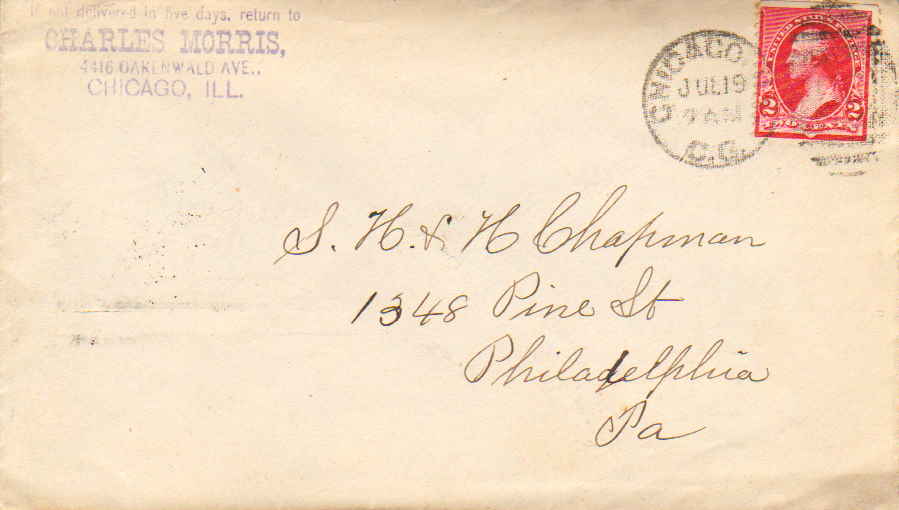 If not delivered in five days, return to
CHARLES MORRIS,
4416 OAKENWALD AVE.,
CHICAGO, ILL.
CHICAGO
JUL 19
AM
C.G.
UNITED STATES POSTAGE
2 2
S. H. & H Chapman
1348 Pine St
Philadelphia
Pa